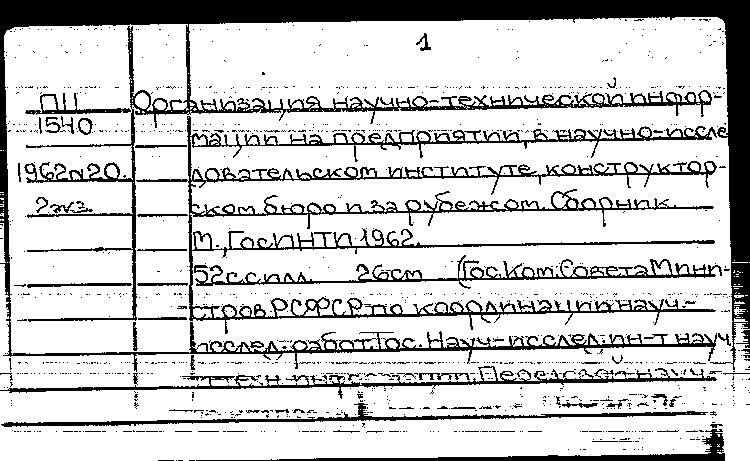 1
ПII Организация научно-технической инфор-
1540 мации на предприятии, в научно-иссле
1962 N20. довательском институте, конструктор-
2экз. ском бюро и за рубежом. Сборник.
М., ГосИНТИ, 1962.
52с.с илл. 26см (Гос. Ком. Совета Мини-
стров РСФСР по координации науч.-
исслед. работ. Гос. Науч-исслед. ин-т науч
-техн. информации. Передовой науч.-